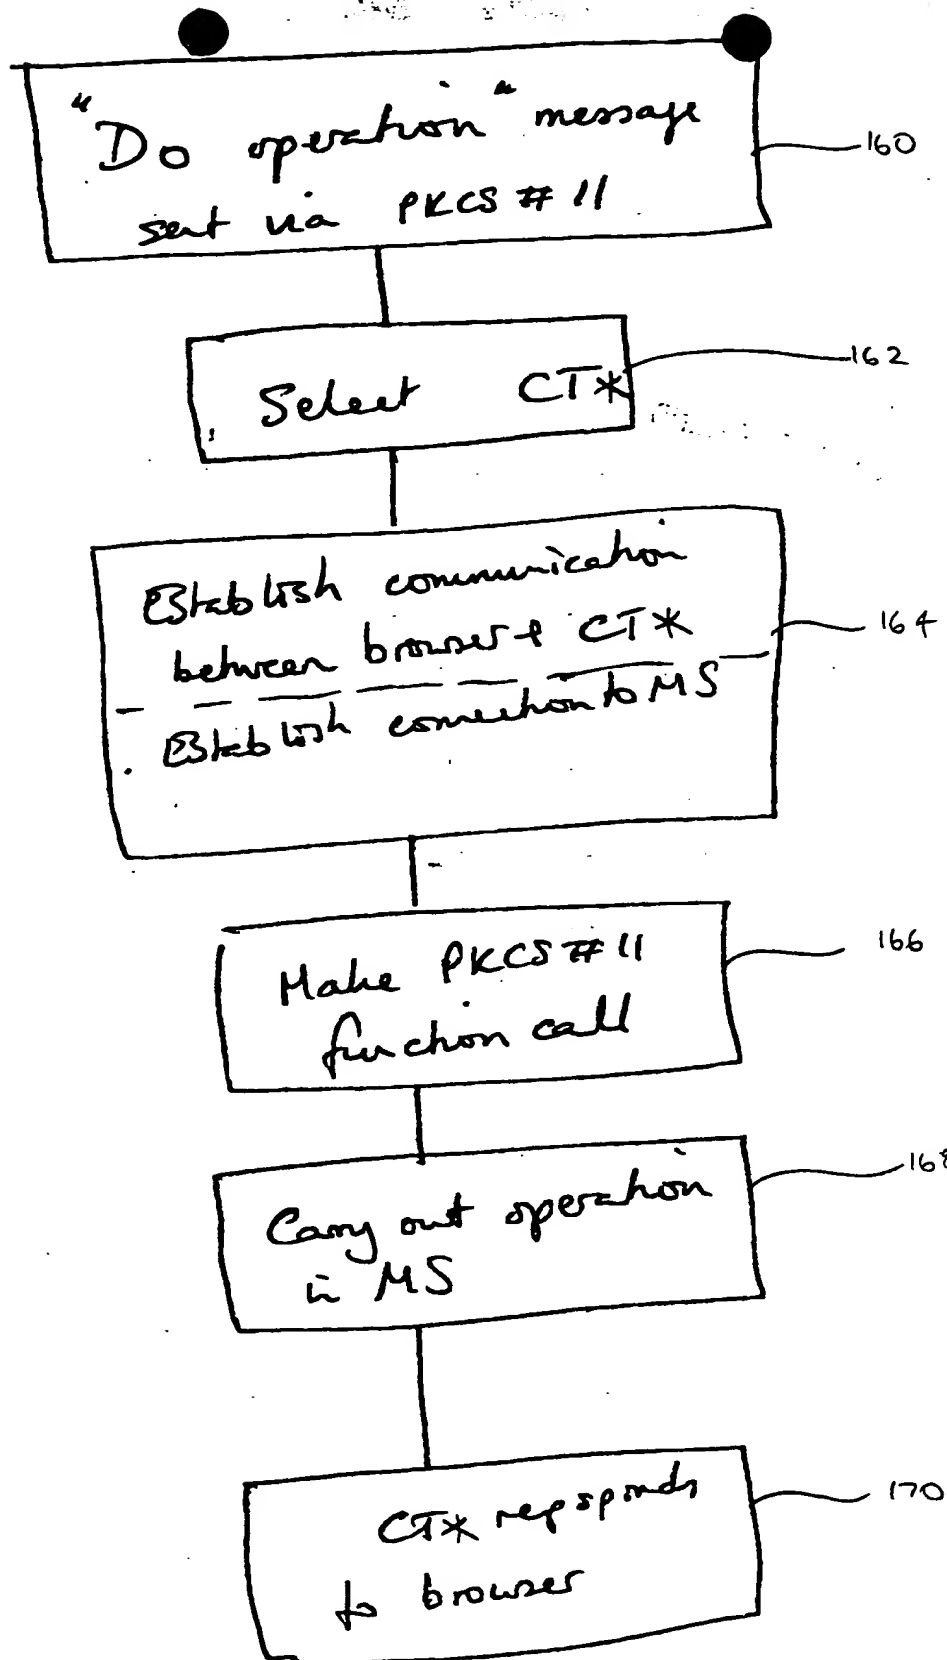 "Do operation" message
sent via PKCS#11
160
Select CT*
162
Establish communication
between browser & CT*
164
Establish connection to MS
Make PKCS#11
function call
166
Carry out operation
in MS
168
CT* repsponds
to browser
170